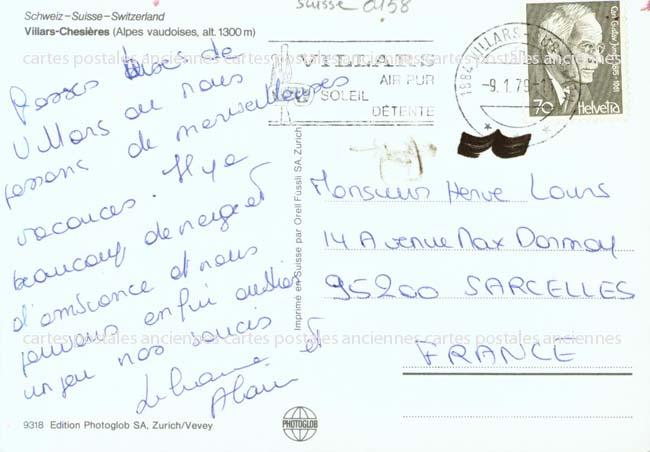 suisse 0158
Schweiz–Suisse–Switzerland
Villars-Chesières (Alpes vaudoises, alt. 1300 m)
de
Villars où nous
passons de merveilleuses
vacances. Il y a
beaucoup de neige et
d'ambiance et nous
pouvons enfin oublier
un peu nos soucis
et
Alain
9318 Edition Photoglob SA, Zurich/Vevey
Imprimé en Suisse par Orell Füssli SA, Zurich
PHOTOGLOB
VILLARS
AIR PUR
SOLEIL
DÉTENTE
1884 VILLARS
-9.1.79-
70 Helvetia
Monsieur Herve Louis
14 Avenue Max Dormoy
95200 SARCELLES
FRANCE
cartes postales anciennes cartes postales anciennes cartes postales anciennes
cartes postales anciennes cartes postales anciennes cartes postales anciennes